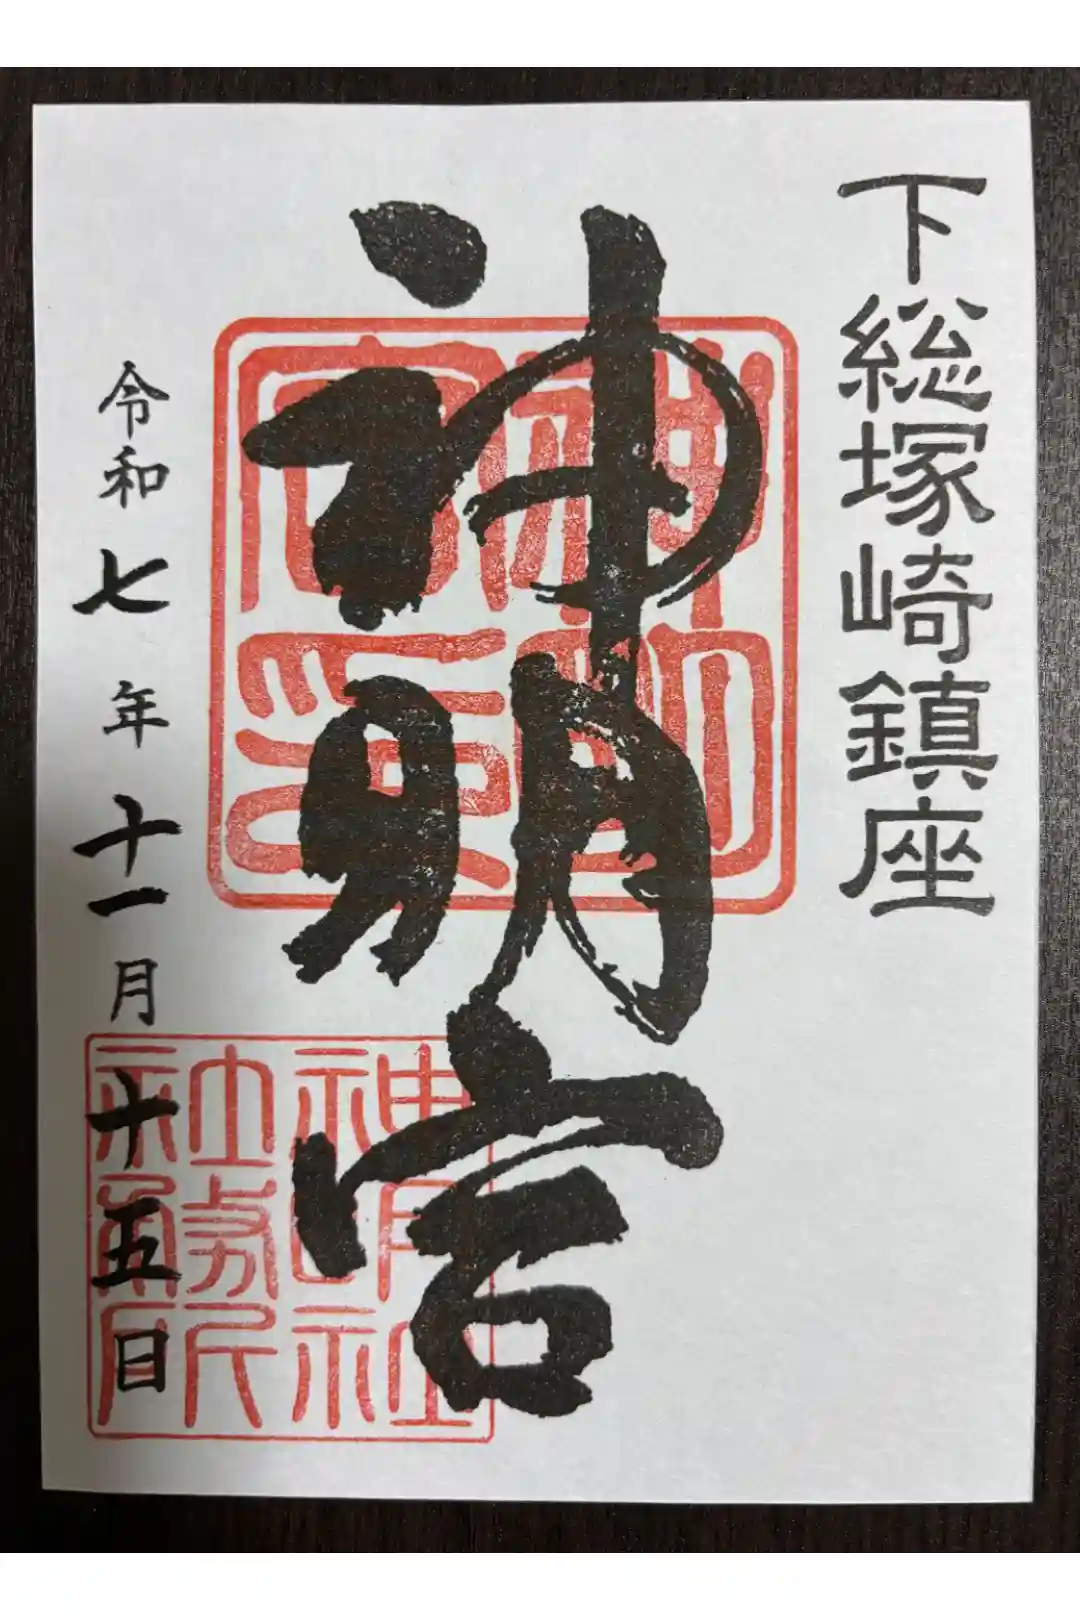 下総塚崎鎮座
神明宮
令和七年十一月十五日
神明社
社務所